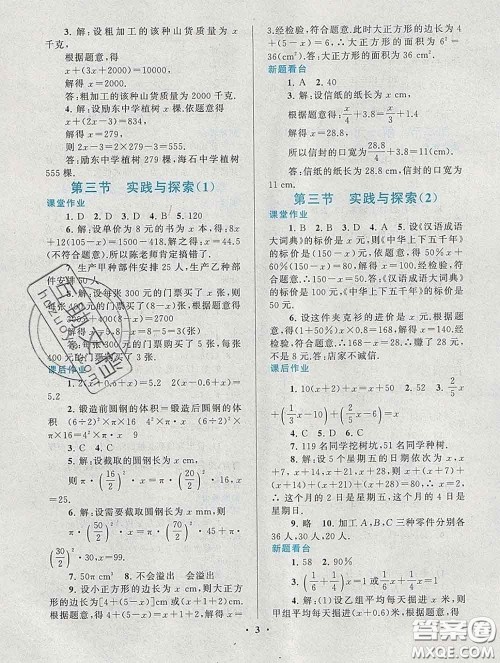 3. 解:设粗加工的该种山货质量为 x
千克,
根据题意,得
x+(3x+2000)=10000,
解得 x=2000.
答:粗加工的该种山货质量为 2000 千克.
4. 解:设励东中学植树 x 棵.依题意得
x+(2x-3)=834,
解得 x=279,
则 2x-3=2×279-3=555.
答:励东中学植树 279 棵,海石中学植树
555 棵.
第三节 实践与探索(1)
课堂作业
1. D 2. D 3. A 4. B 5. 120
6. 解:设单价为 8 元的书为 x 本,得:8x
+12(105-x)=1500-418,解得:x=44.5
(不符合题意).所以陈老师肯定搞错了.
7. 生产甲种部件安排 25 人,生产乙种部
件安排 50 人
8. 解:设每张 300 元的门票买了 x 张,则
每张 400 元的门票买了(8-x)张,由题意得
300x+400(8-x)=2700,
解得 x=5,
∴买 400 元每张的门票张数为 8-5=3(张),
答:每张 300 元的门票买了 5 张,每张
400 元的门票买了 3 张.
课后作业
1. 2(x+0.5x)=5.2 2(x-0.6+x)=5.2
2. 锻造前圆钢的体积=锻造后圆钢的体积
(6÷2)²×π×16=4²×π·x 9
3. C 4. C
5. 解:设截取的圆钢长为 x cm,
则 π·(50/2)²·x=π·(75/2)²·16,解得 x=36.
6. 解:设需要截取的圆钢长为 x mm,则
π·(30/2)²·x=π·(20/2)²·30+
9. 50π cm³ 不会溢出 会溢出
2. 解:设小正方形的边长为 x cm,则大正方
形的边长为[4+(5-x)]cm 或(x+1+2)cm.
根据题意得 x+1+2=4+(5-x),解得 x=
3.经检验,符合题意.此时大正方形的边长为 4
+(5-x)=6.∴大正方形的面积为 6²=
36(cm²).答:大正方形的面积为 36 cm².
新题看台
1. A 2. 40
3. 解:设信纸的纸长为 x cm,
根据题意得:x/4+3.8=x/3+1.4.
解得 x=28.8,
所以信封的口宽为 x/4+3.8=11(cm).
答:信纸的纸长为 28.8 cm,信封的口宽为
11 cm.
第三节 实践与探索(2)
课堂作业
1. D 2. B 3. D 4. 2 5. 解:设《汉语成语
大词典》的标价是 x 元,则《中华上下五千年》
的标价是(150-x)元,根据题意,得 50%x+
60%(150-x)=80,解得 x=100.经检验,符
合题意.150-x=50.答:《汉语成语大词典》的
标价是 100 元,《中华上下五千年》的标价是
50 元.
6. 解:设这件夹克衫的进价是 x 元.根据
题意得(1+50%)x·80%=60,解得 x=50,
60-50=10.答:店家不诚信.
课后作业
1. 10(x+2)+x=50 2. x 3. 2/5 x
+(1/3 x-10)+(1/2 x+x-6)=x
4. C 5. D 6. C
7. 119 名同学挖树坑,51 名同学种树.
8. 解:设 5 个星期五的日期依次为 x,x+
7,x+14,x+21,x+28.根据题意,得 x+(x+
7)+(x+14)+(x+21)+(x+28)=80,解得 x
=2.∴这个月的 2 日是星期五,这个月的 4 日是
星期日.
9. 略 10. 加工 A,B,C 三种零件分别各
16 人、36 人、30 人.
新题看台
1. 58 2. 90%
3. 解:(1)设乙组平均每天掘进 x 米,则
甲组平均每天掘进(x+0.6)米,根据题意,得
· 3 ·
答案圈
MXQE.COM